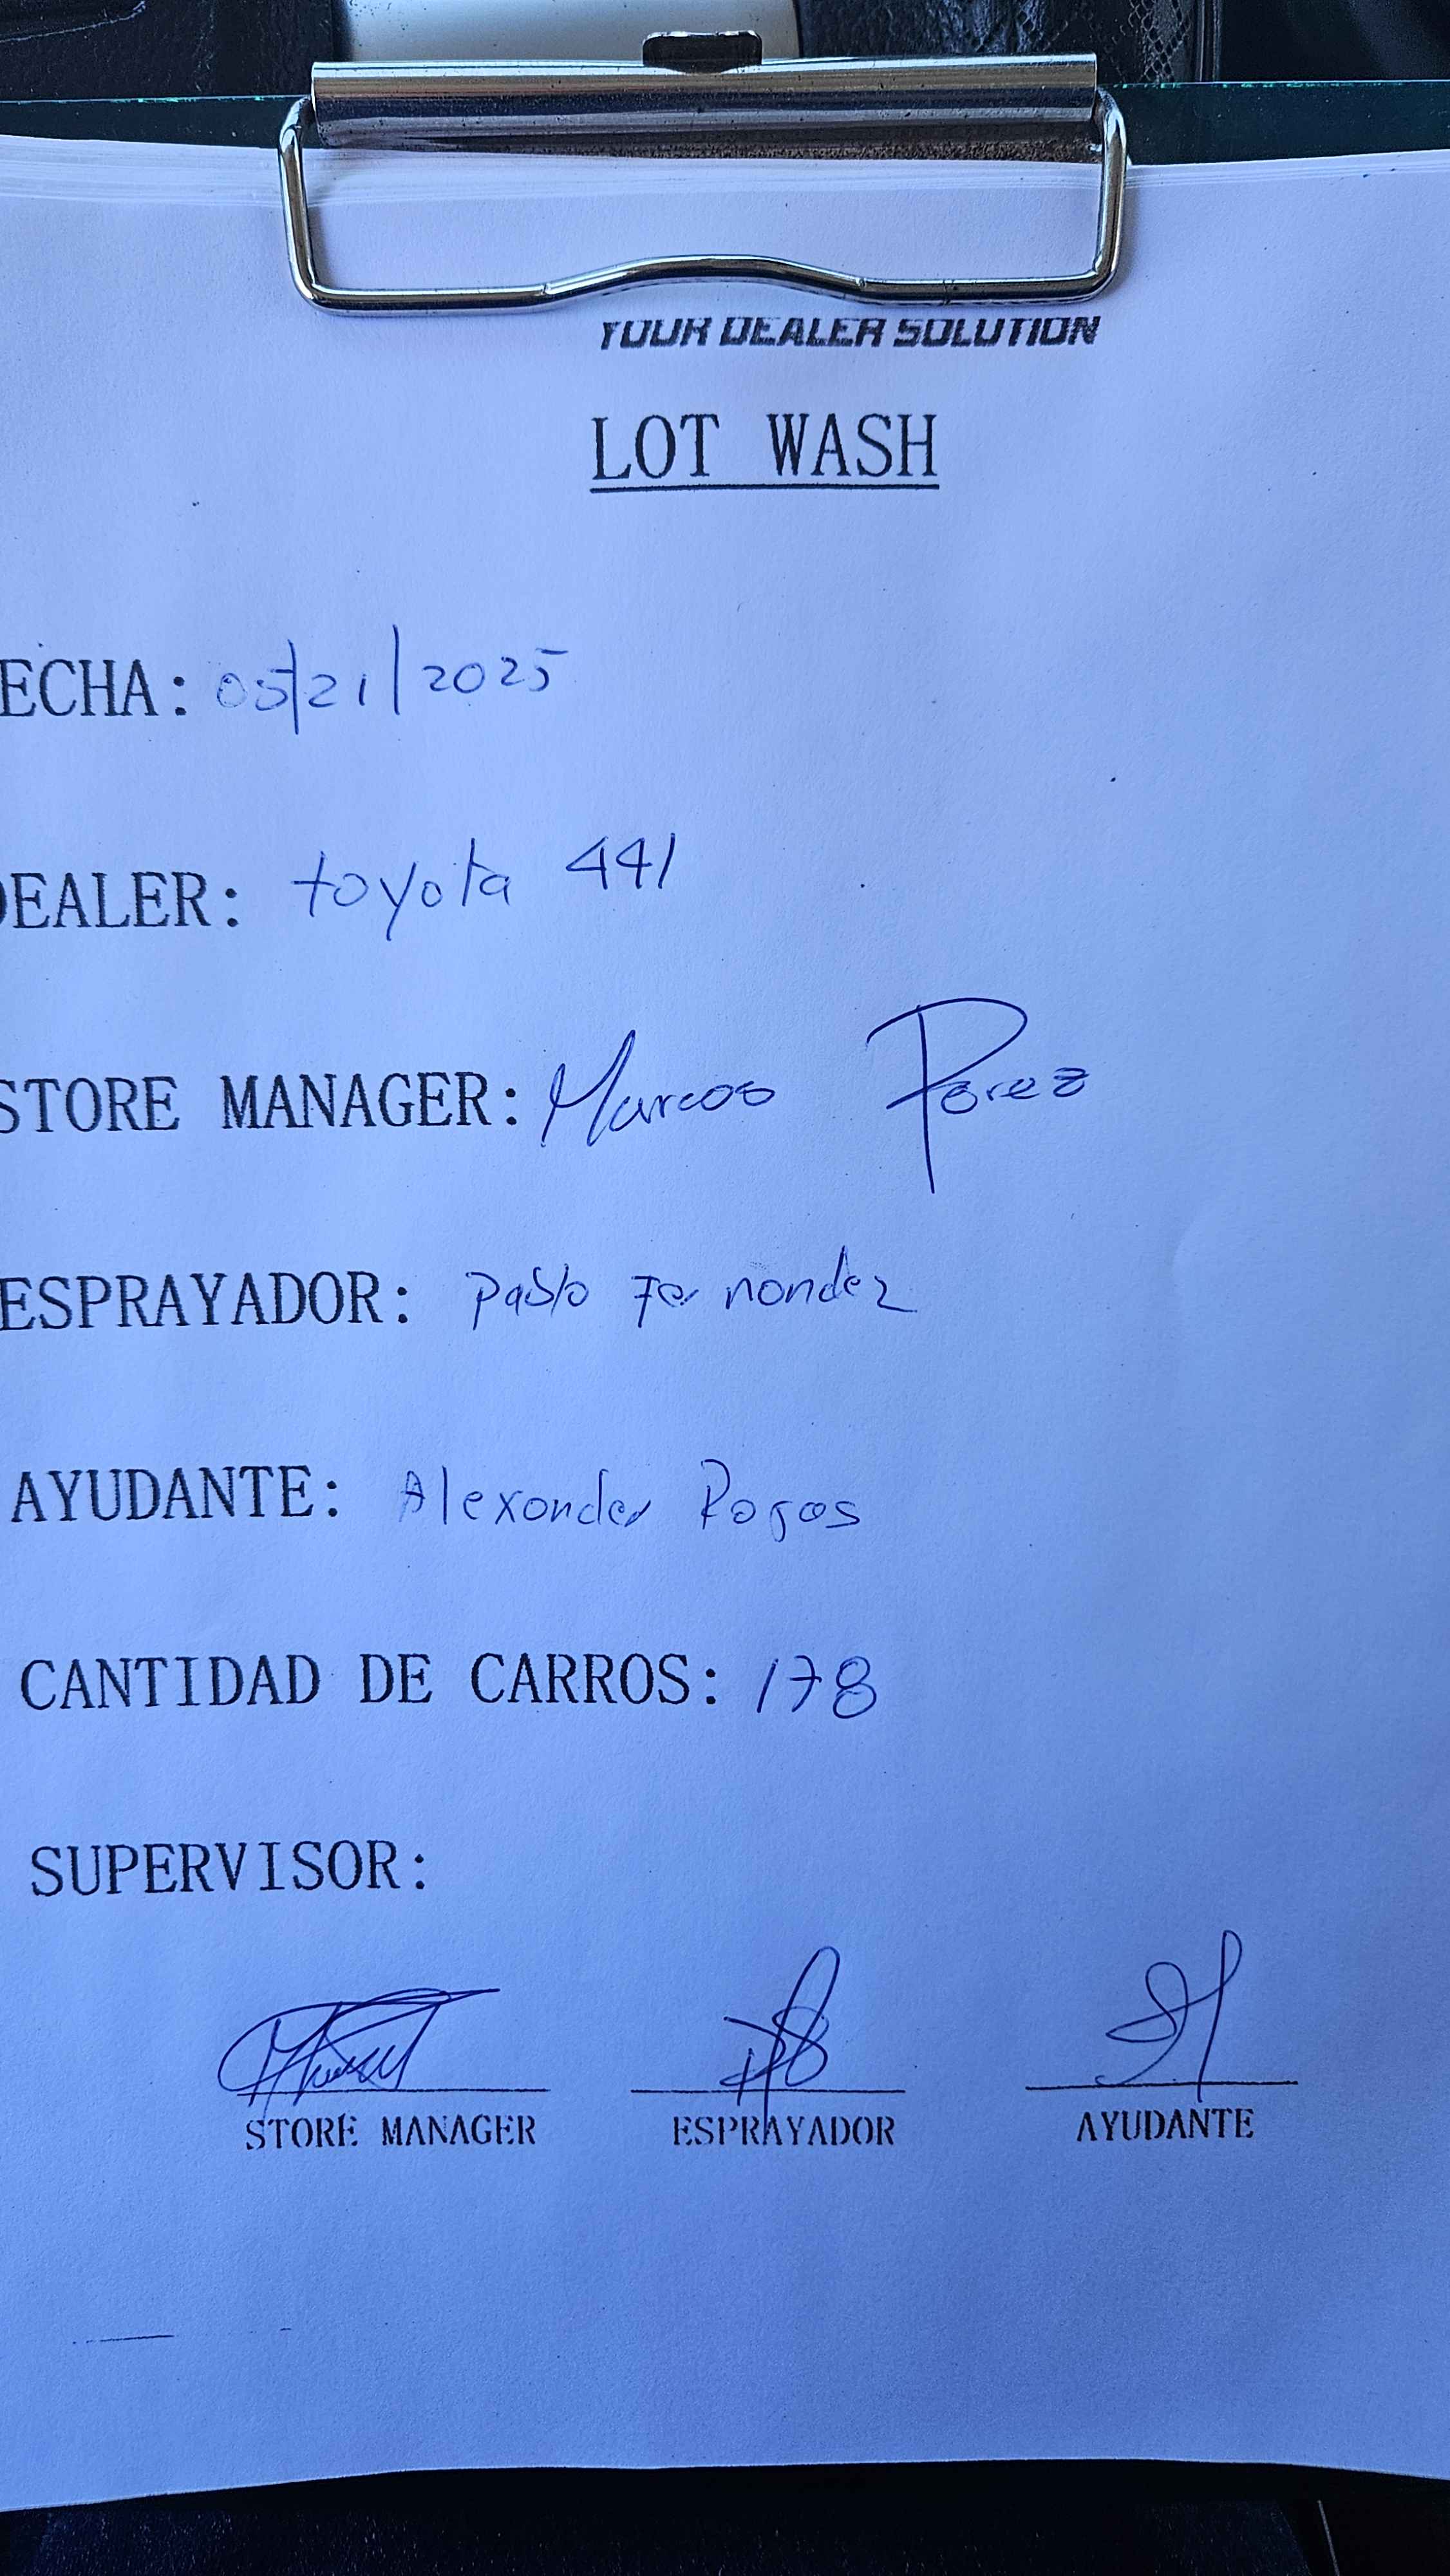 YOUR DEALER SOLUTION
LOT WASH
ECHA: 05/21/2025
DEALER: toyota 441
STORE MANAGER: Marcos Perez
ESPRAYADOR: Pablo Fernondez
AYUDANTE: Alexonder Rojas
CANTIDAD DE CARROS: 178
SUPERVISOR:
STORE MANAGER ESPRAYADOR AYUDANTE